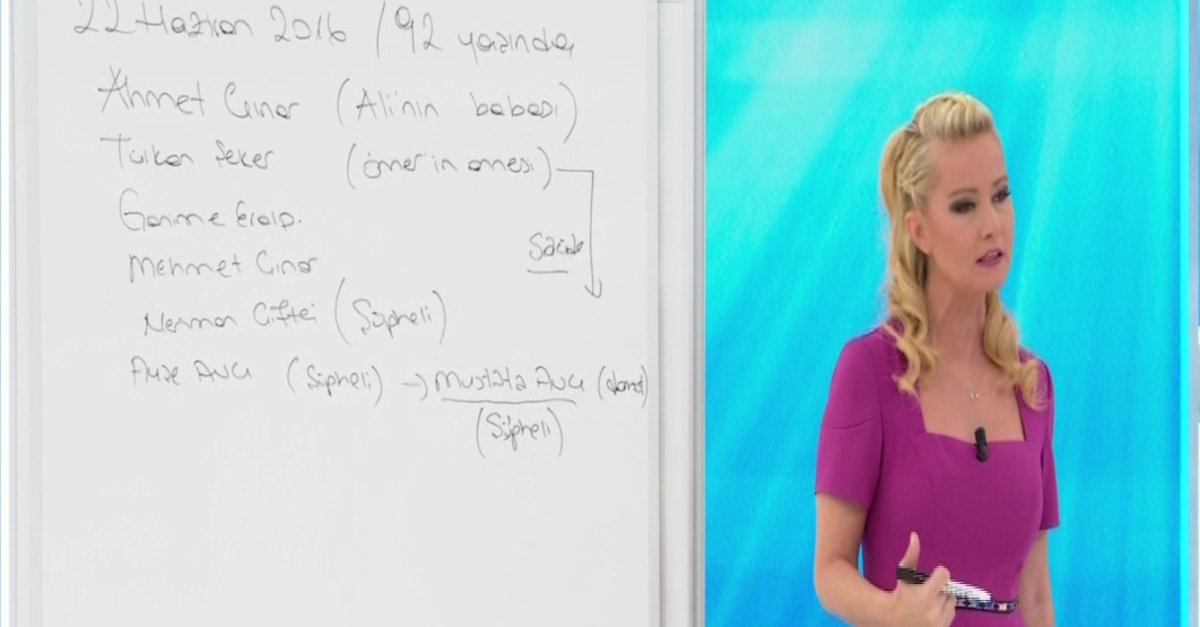 22 Haziran 2016 / 92 yaşında
Ahmet Çınar (Ali'nin babası)
Türkan Şeker (Ömer'in annesi)
Mehmet Çınar
Nerman Çiftçi (Şüpheli)
Ayşe Avcı (Şüpheli) → Mustafa Avcı (damat)
(Şüpheli)